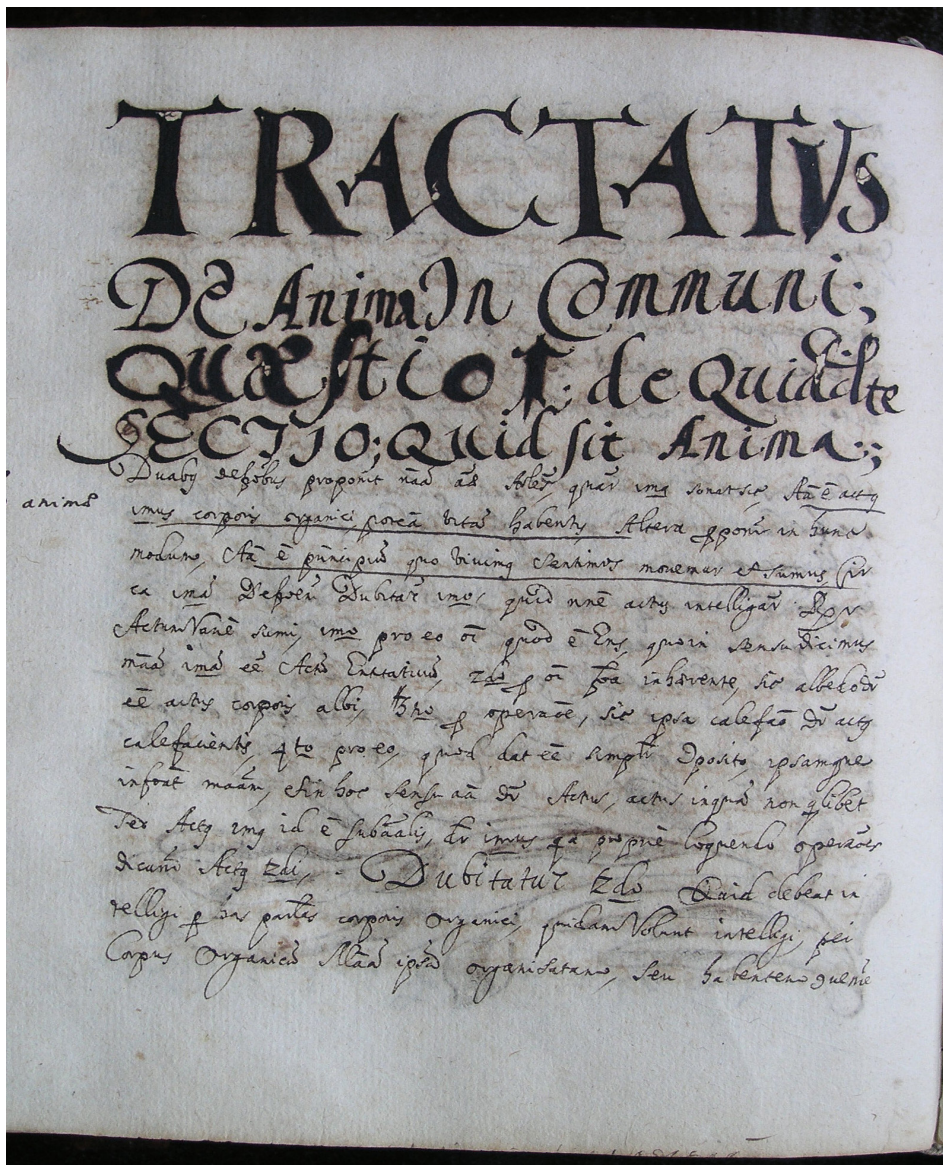 TRACTATVS
De Anima In Communi;
Quæstio 1: de Quiddite
SECTIO; Quid sit Anima;
animæ
Duabq defbus proponit nãã aæ quar imq sonat sic Aã ẽ actq
imus corporis organici potẽa vitã habentis Altera pponit in hunc
modum, Aã ẽ principiũ quo vivimq Sentimus movemur et sumus Cir
ca imã Defoem Dubitat imo, quid nnẽ actus intelligat
Actum Vanẽ sumi, imo pro eo oĩ quod ẽ Ens, quo in sensu dicimus
mãã imã eẽ Actũ Entitativũ, 2do p oĩ fõa inhærente, sic albedo dr
eẽ actus corporis albi, 3tio p operaõe, sic ipsa calefaõ dr actq
calefacientis, 4to pro eo, quod dat eẽ simplr Dposito, ipsamque
infoat maãm, et in hoc sensu aã dr Actus, actus inquã non qlibet
sed Actq imq id ẽ subãalis, dr imus qa propriẽ loquendo operaões
dicunt Actq 2di, Dubitatur 2do Quid debeat in
telligi p has partlas corporis Organici, quidam Volunt intelligi, per
Corpus Organicũ Mãã ipsã organisatam, seu habentem